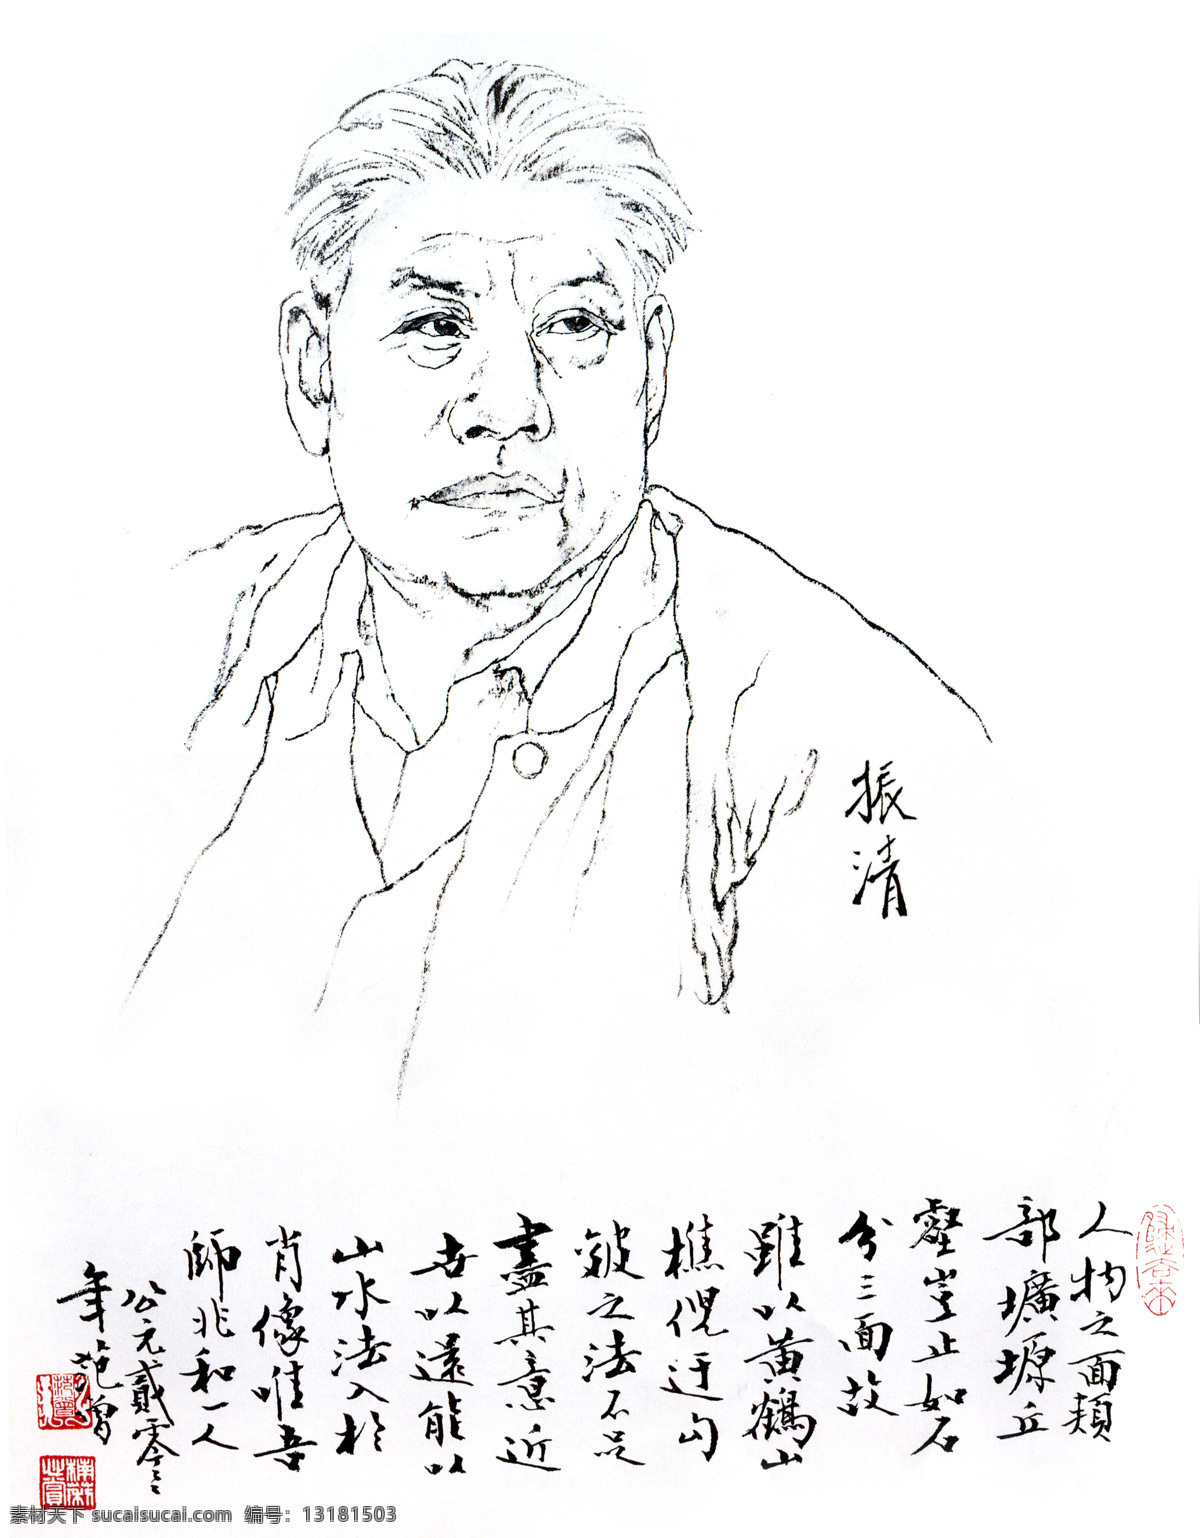 振清
人物之面頰
部壙塬丘
壑豈止如石
分三面故
雖以黄鶴山
樵倪迂勾
皴之法不足
盡其意近
世以還能以
山水法入於
肖像唯吾
師兆和一人
公元貳零〻〻
年范曾
素材天下 sucaisucai.com 编号：13181503